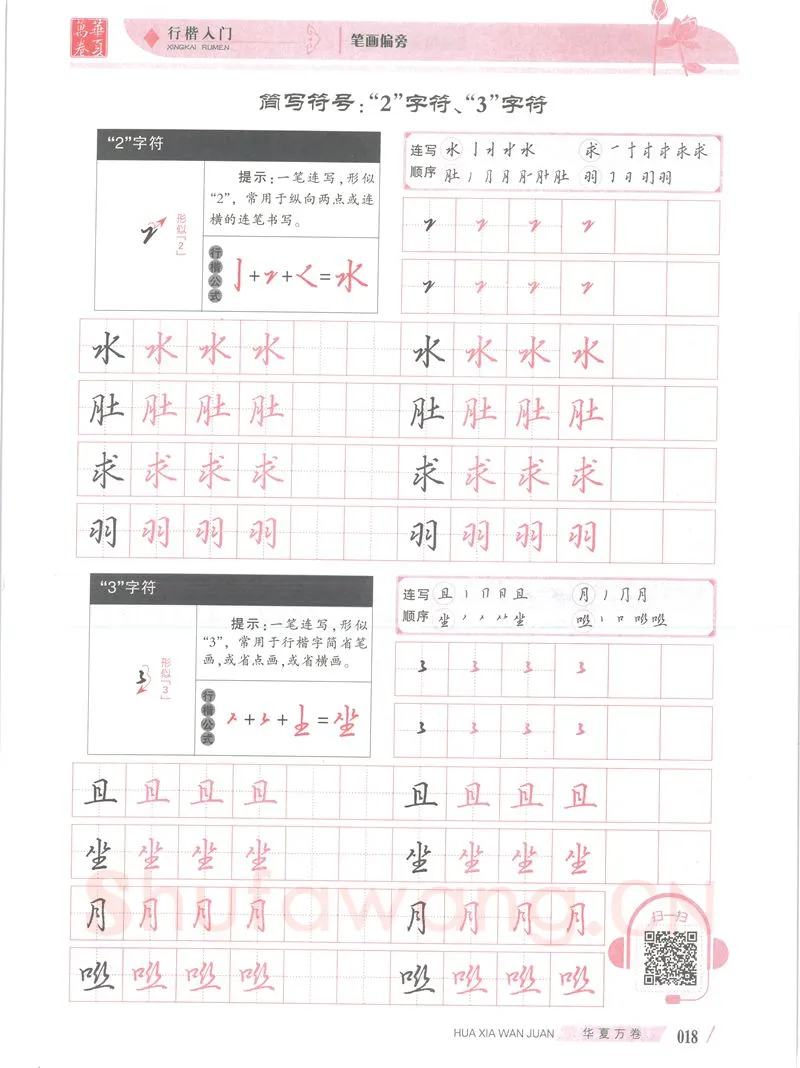 華夏萬卷
行楷入门
XINGKAI RUMEN
笔画偏旁
简写符号：“2”字符、“3”字符
“2”字符
提示：一笔连写，形似
“2”，常用于纵向两点或连
横的连笔书写。
形似「2」
行楷公式
水
连写顺序
水 水
求 求
肚 肚
羽 羽
水 水 水 水 水 水 水 水
肚 肚 肚 肚 肚 肚 肚 肚
求 求 求 求 求 求 求 求
羽 羽 羽 羽 羽 羽 羽 羽
“3”字符
提示：一笔连写，形似
“3”，常用于行楷字简省笔
画，或省点画，或省横画。
形似「3」
行楷公式
坐
连写顺序
且 且
月 月
坐 坐
3 3 3 3
3 3 3 3
且 且 且 且 且 且 且 且
坐 坐 坐 坐 坐 坐 坐 坐
月 月 月 月 月 月 月 月
Shufawang.CN
扫一扫
HUA XIA WAN JUAN
华夏万卷
018